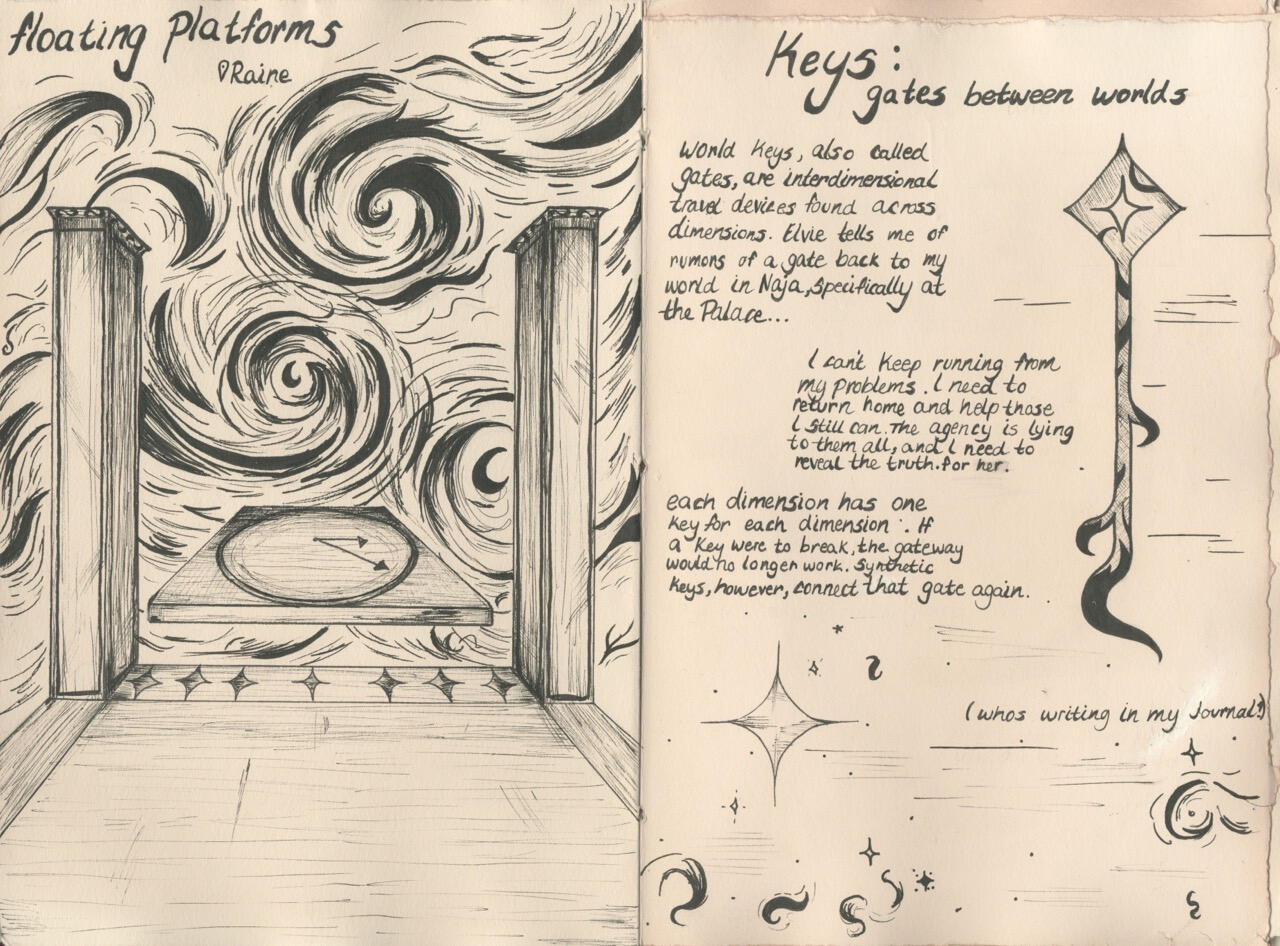 floating Platforms
Raine
Keys:
gates between worlds
World Keys, also called
gates, are interdimensional
travel devices found across
dimensions. Elvie tells me of
rumors of a gate back to my
world in Naja, Specifically at
the Palace...
I can't keep running from
my problems. I need to
return home and help those
I still can. The agency is lying
to them all, and I need to
reveal the truth. for her.
each dimension has one
key for each dimension. If
a key were to break, the gateway
would no longer work. Synthetic
keys, however, connect that gate again.
(whos writing in my Journal?)